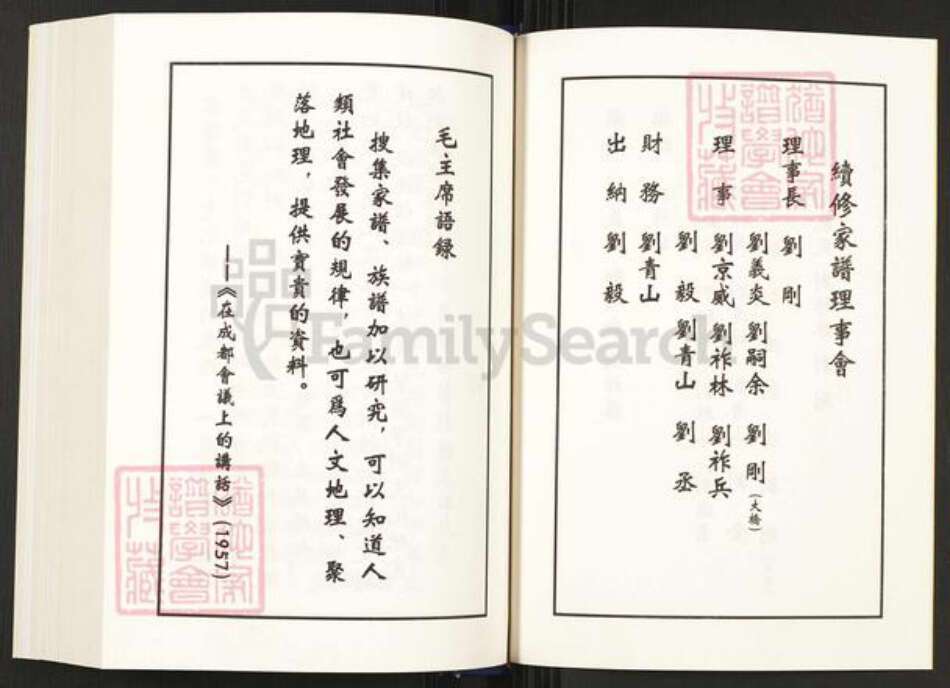 續修家譜理事會
理事長 劉剛
理事 劉義炎 劉嗣余 劉剛(大橋)
劉京威 劉祚林 劉祚兵
劉毅 劉青山 劉丞
財務 劉青山
出納 劉毅
毛主席語録
搜集家譜、族譜加以研究,可以知道人
類社會發展的規律,也可爲人文地理、聚
落地理,提供寶貴的資料。
——《在成都會議上的講話》(1957)
FamilySearch
譜學會
收藏
譜學會
收藏